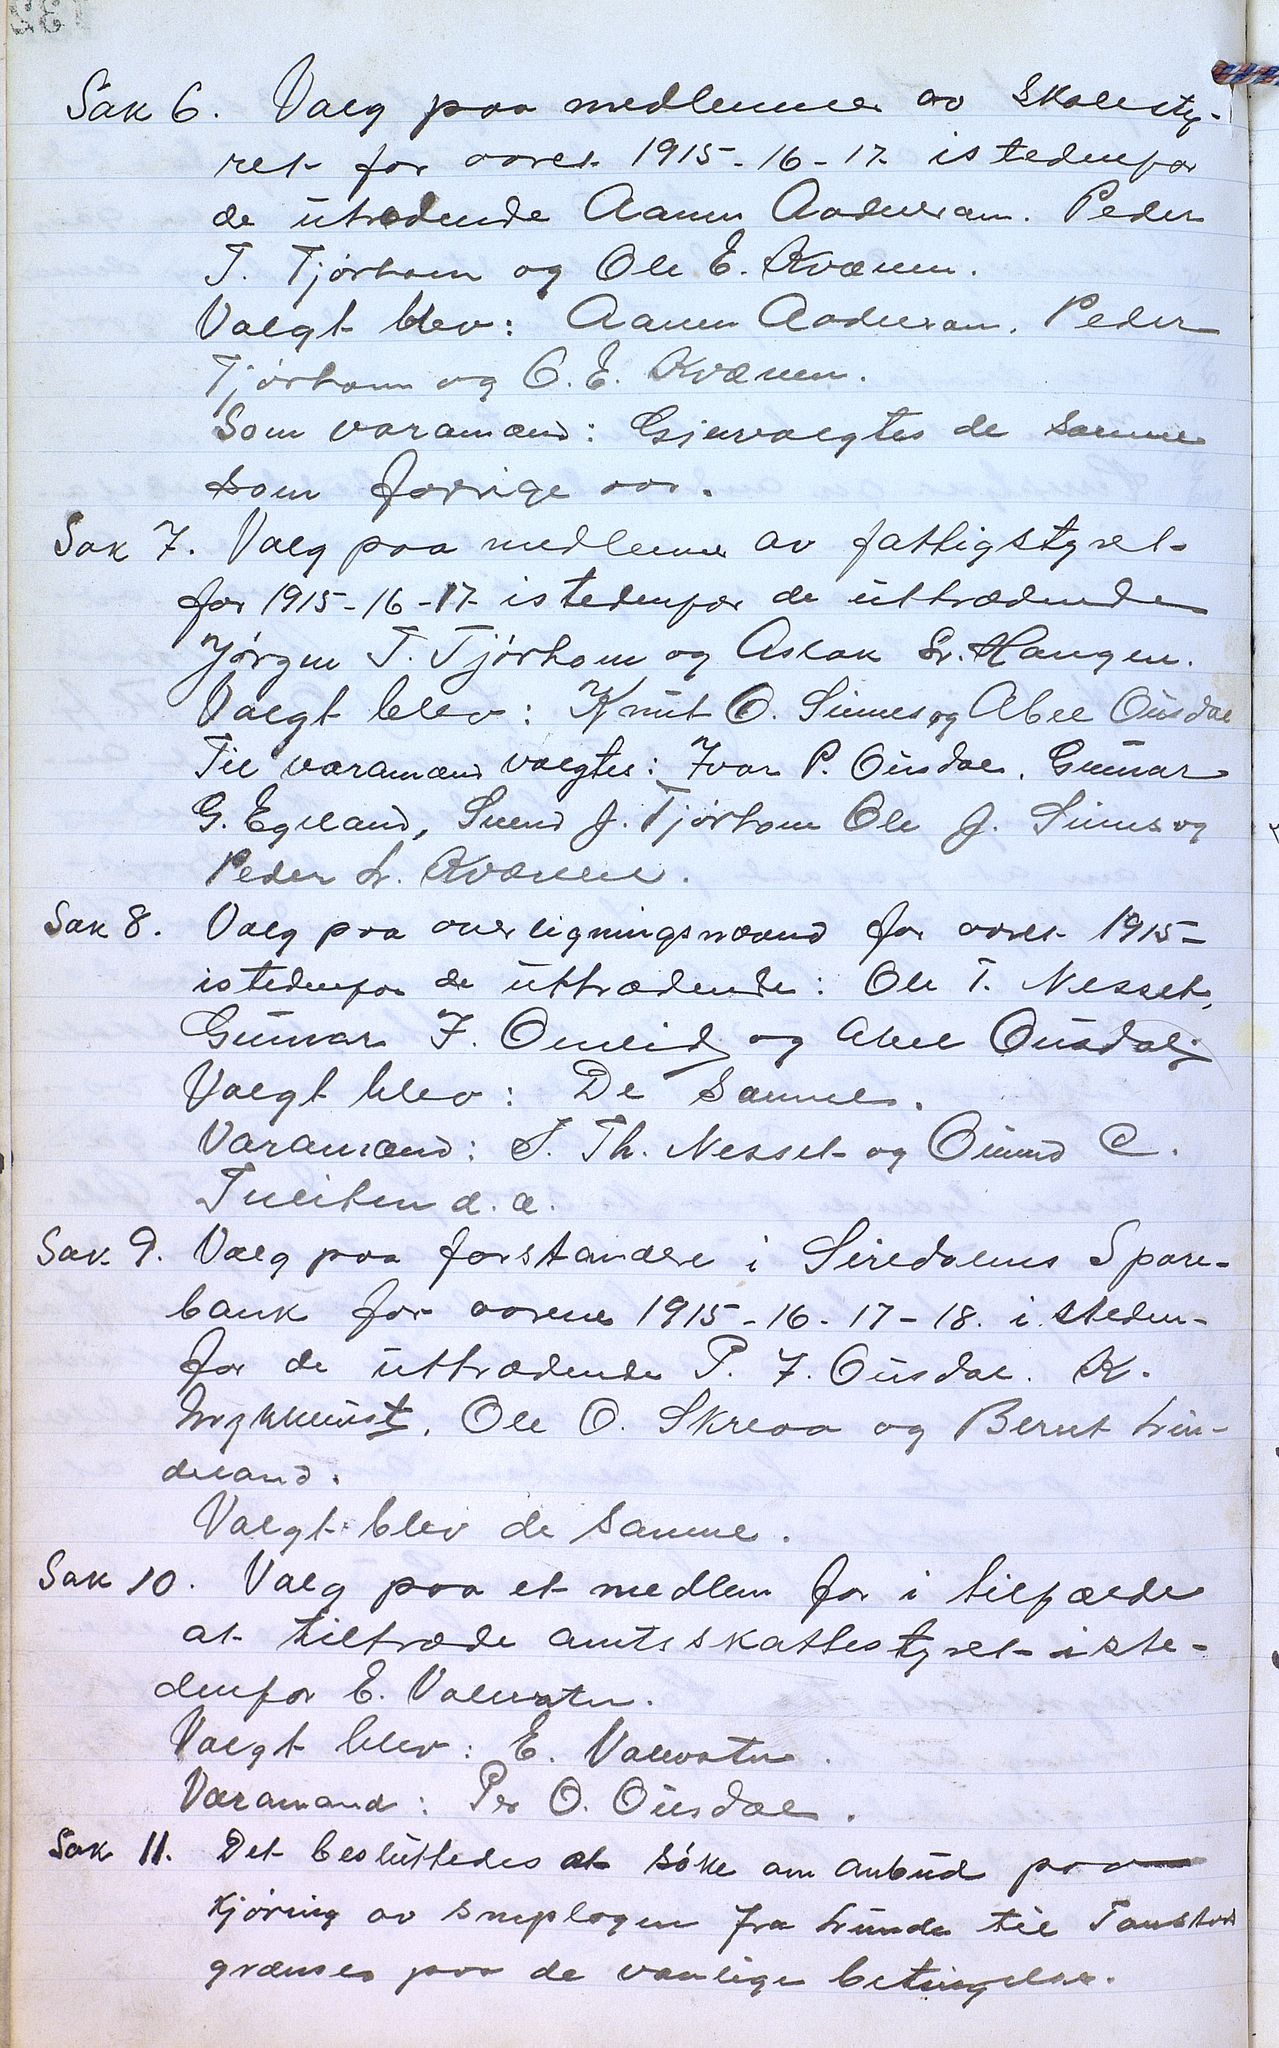 Sak 6. Valg paa medlemmer av skolesty-
ret for aaret 1915-16-17 istedenfor
de utrædende Aanen Aadneram. Peder
T. Tjørhom og Ole E. Kvæven.
Valgt blev: Aanen Aadneram. Peder
Tjørhom og O. E. Kvæven.
Som varamænd: Gjenvalgtes de samme
som forrige aar.
Sak 7. Valg paa medlemmer av fattigstyret
for 1915-16-17 istedenfor de uttrædende
Jørgen T. Tjørhom og Aslak Haugen.
Valgt blev: Knut O. Sinnes og Abel Ousdal
Til varamænd valgtes: Ivar P. Ousdal. Gunnar
G. Egeland, Svend J. Tjørhom Ole J. Sinnes og
Peder L. Kvæven.
Sak 8. Valg paa overligningsnævnd for aaret 1915
istedenfor de uttrædende: Ole T. Nesset,
Gunvar I. Omlid og Abel Ousdal;
Valgt blev: De samme.
Varamænd: T. Th. Nesset og Omund C.
Tveiten d. æ.
Sak 9. Valg paa forstandere i Siredalens Spare-
bank for aarene 1915-16-17-18. i steden-
for de uttrædende P. I. Ousdal. K.
Ole O. Skreaa og Bernt Lin-
deland.
Valgt blev de samme.
Sak 10. Valg paa et medlem for i tilfælde
at tiltræde amtsskattestyret iste-
denfor E. Valevatn.
Valgt blev: E. Valevatn.
Varamand: Per O. Ousdal.
Sak 11. Det besluttedes at søke om anbud paa
kjøring av sneplogen fra Lunde til Tonstad
grænses paa de vanlige betingelser.